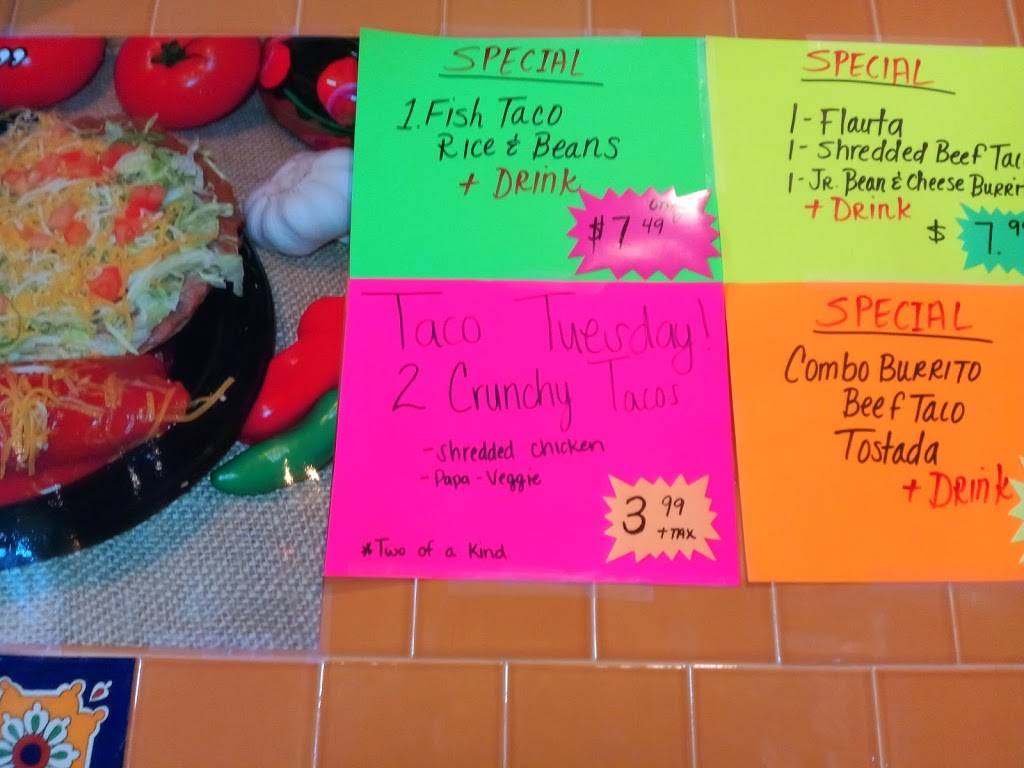 ”
SPECIAL
1. Fish Taco
Rice & Beans
+ DRINK
only
$7 49
SPECIAL
1 - Flauta
1 - Shredded Beef Tac
1 - Jr. Bean & Cheese Burri
+ DRINK
$ 7.9
Taco Tuesday!
2 Crunchy Tacos
- shredded chicken
- Papa - Veggie
3 99
+ TAX
*Two of a Kind
SPECIAL
Combo BURRITO
Beef Taco
Tostada
+ DRINK